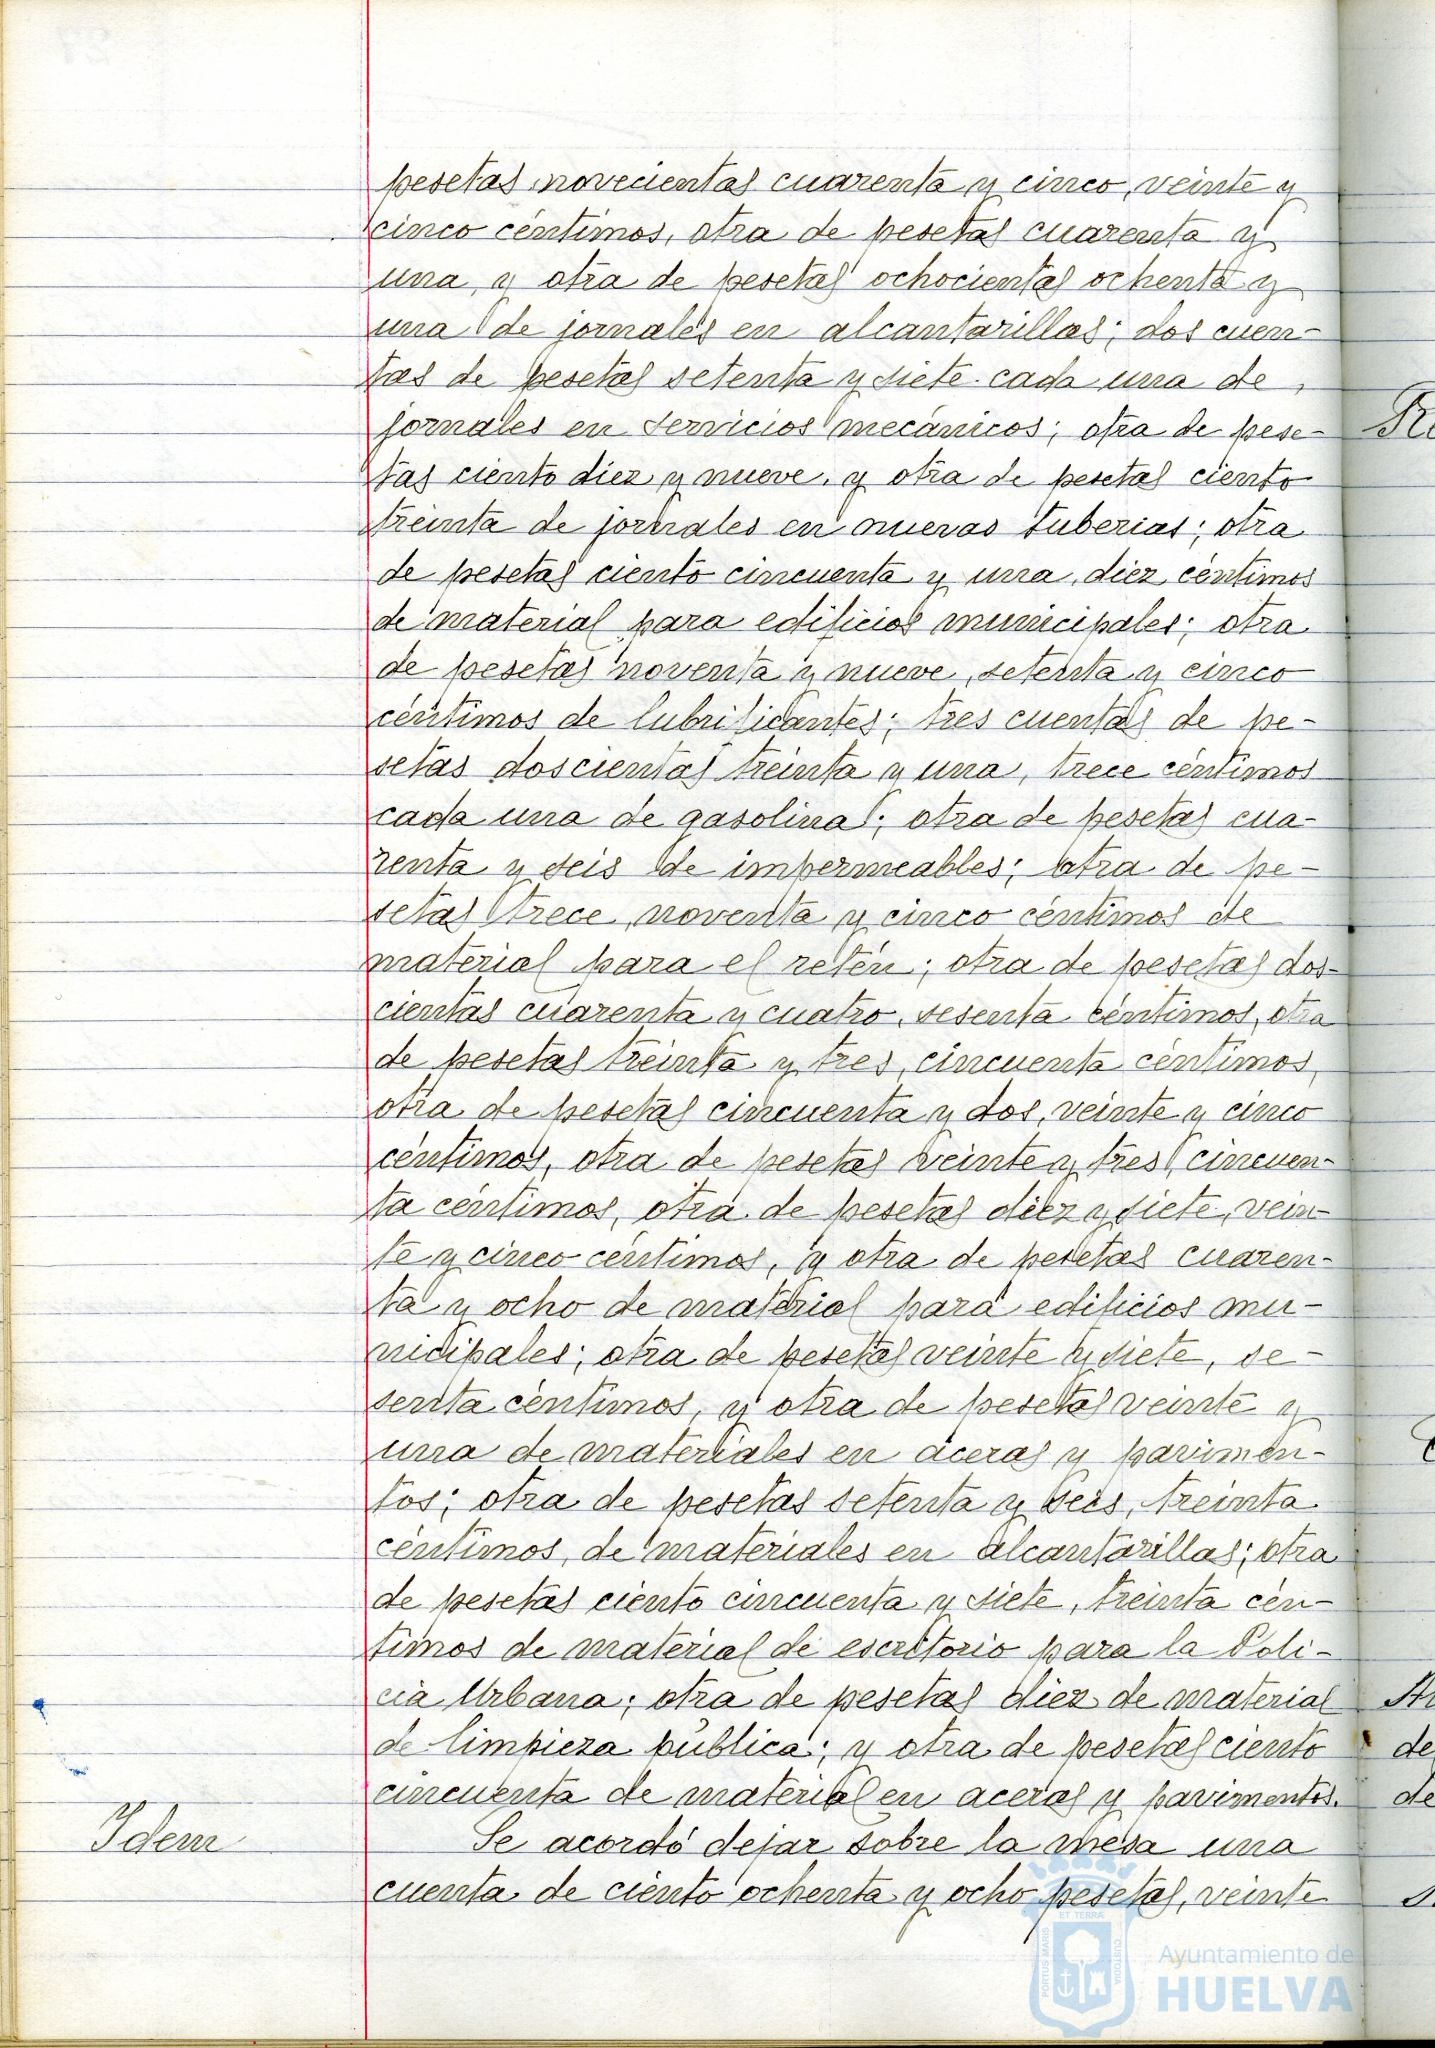 pesetas novecientas cuarenta y cinco, veinte y
cinco céntimos, otra de pesetas cuarenta y
una, y otra de pesetas ochocientas ochenta y
una de jornales en alcantarillas; dos cuen-
tas de pesetas setenta y siete cada una de
jornales en servicios mecánicos; otra de pese-
tas ciento diez y nueve, y otra de pesetas ciento
treinta de jornales en nuevas tuberias; otra
de pesetas ciento cincuenta y una, diez céntimos
de material para edificios municipales; otra
de pesetas noventa y nueve, setenta y cinco
céntimos de lubrificantes; tres cuentas de pe-
setas doscientas treinta y una, trece céntimos
cada una de gasolina; otra de pesetas cua-
renta y seis de impermeables; otra de pe-
setas trece, noventa y cinco céntimos de
material para el retén; otra de pesetas dos-
cientas cuarenta y cuatro, sesenta céntimos, otra
de pesetas treinta y tres, cincuenta céntimos,
otra de pesetas cincuenta y dos, veinte y cinco
céntimos, otra de pesetas veinte y tres, cincuen-
ta céntimos, otra de pesetas diez y siete, vein-
te y cinco céntimos, y otra de pesetas cuaren-
ta y ocho de material para edificios mu-
nicipales; otra de pesetas veinte y siete, se-
senta céntimos, y otra de pesetas veinte y
una de materiales en aceras y pavimen-
tos; otra de pesetas setenta y seis, treinta
céntimos, de materiales en alcantarillas; otra
de pesetas ciento cincuenta y siete, treinta cén-
timos de material de escritorio para la Poli-
cia Urbana; otra de pesetas diez de material
de limpieza pública; y otra de pesetas ciento
cincuenta de material en aceras y pavimentos.
Idem
Se acordó dejar sobre la mesa una
cuenta de ciento ochenta y ocho pesetas, veinte
PORTUS MARIS
ET TERRÆ
CUSTODIA
Ayuntamiento de
HUELVA